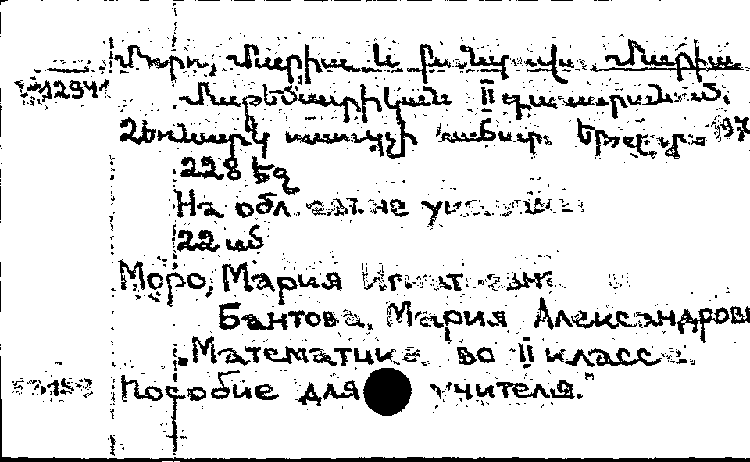 Մորո, Մարիա և Բանտովա Մարիա
12941
Մաթեմատիկան II դասարանում.
Ձեռնարկ ուսուցչի համար. Երևան, 197
228 էջ
На обл. авт. не указаны
22 սմ
Моро, Мария Игнатьевна и
Бантова, Мария Александровн
„Математика во II классе.
Пособие для учителя.“